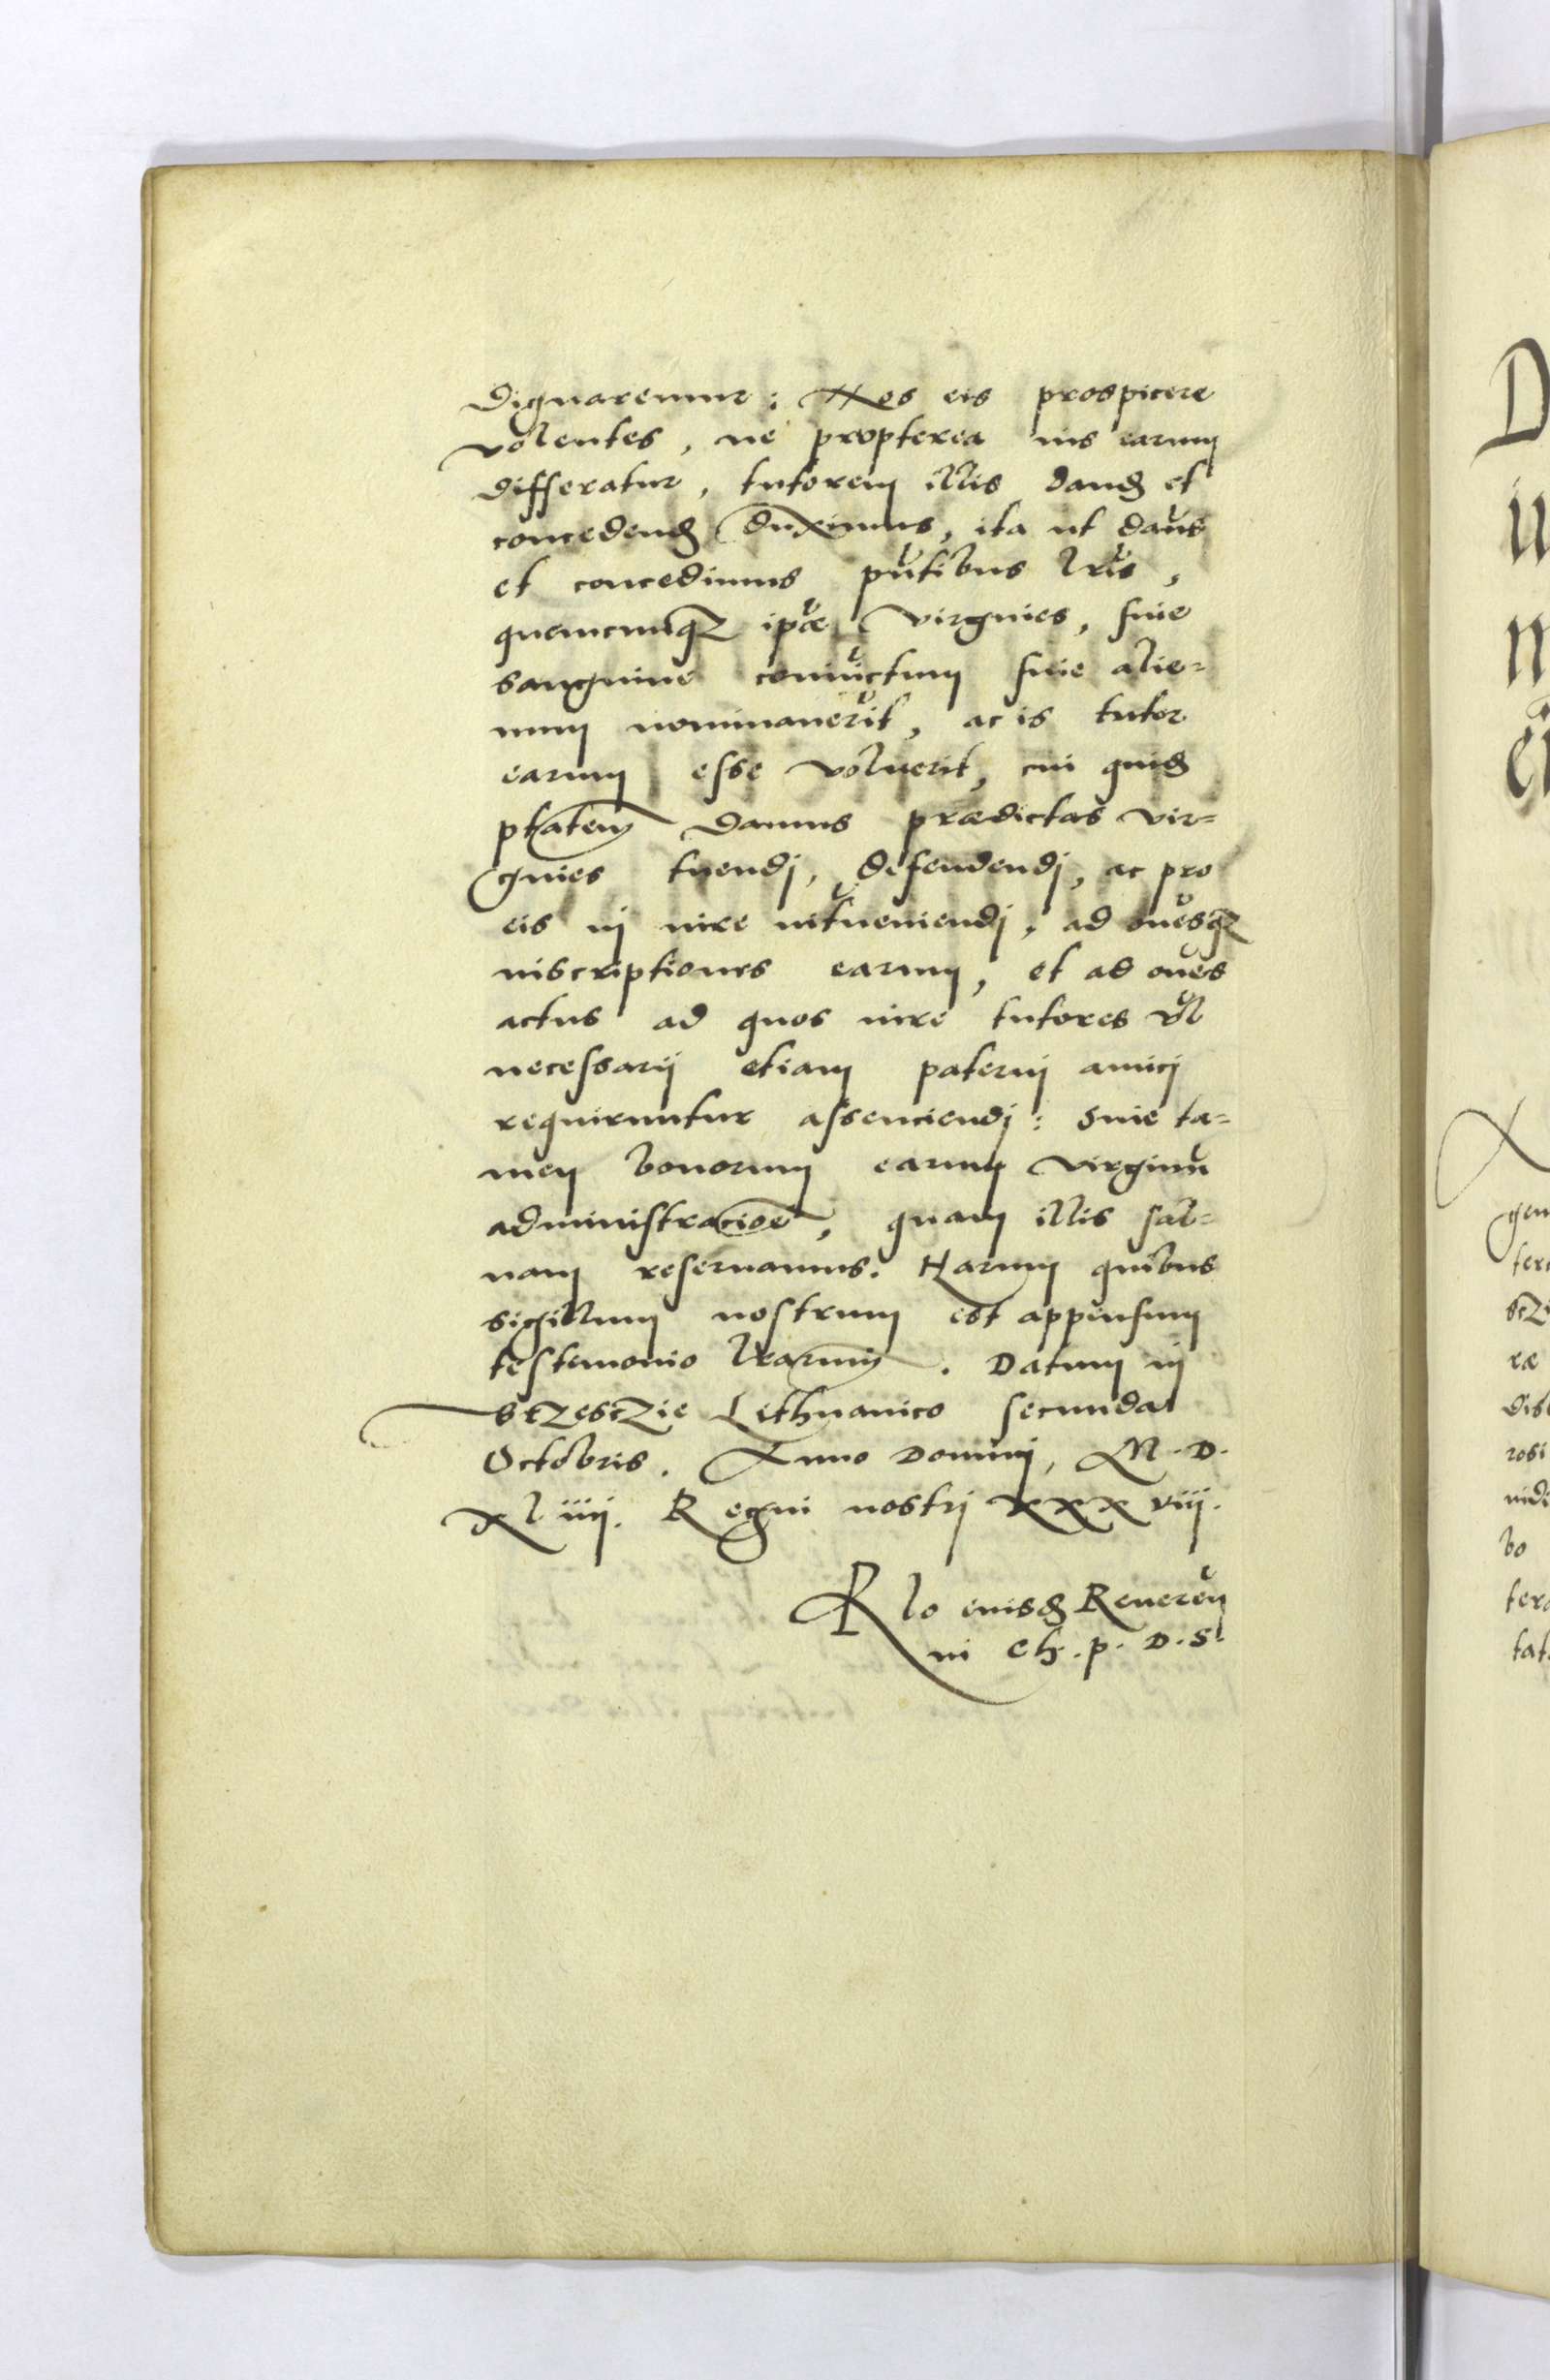 dignaremur: Nos eis prospicere
volentes, ne propterea ius earum
differatur, tutorem illis dand et
concedend duximus, ita ut dam̃s
et concedimus pñtibus lr̃is,
quemcumqȝ ipãe virgines, siue
sanguine coniũctum siue alie=
num nominauer̃it, ac is tutor
earum esse voluerit, cui quid
ptatem damus prædictas vir=
gines tuendj, defendendj, ac pro
eis in iure int̃ueniendj, ad om̃esqȝ
inscriptiones earum, et ad om̃es
actus ad quos iure tutores vl̃
necessarij etiam paternj amicj
requiruntur assenciendj: sine ta=
men bonorum earum virginũ
administracioe, quam illis sal=
uam reseruamus. Harum quibus
sigillum nostrum est appensum
testimonio lrarum. Datum in
Brzesczie Lithuanico secunda
Octobris. Anno Dominj, M. D.
xl iiij. Regni nostrj xxx viij.
Rlo eiusd Reueren̄
ni Ch. p. D. S
D
gen